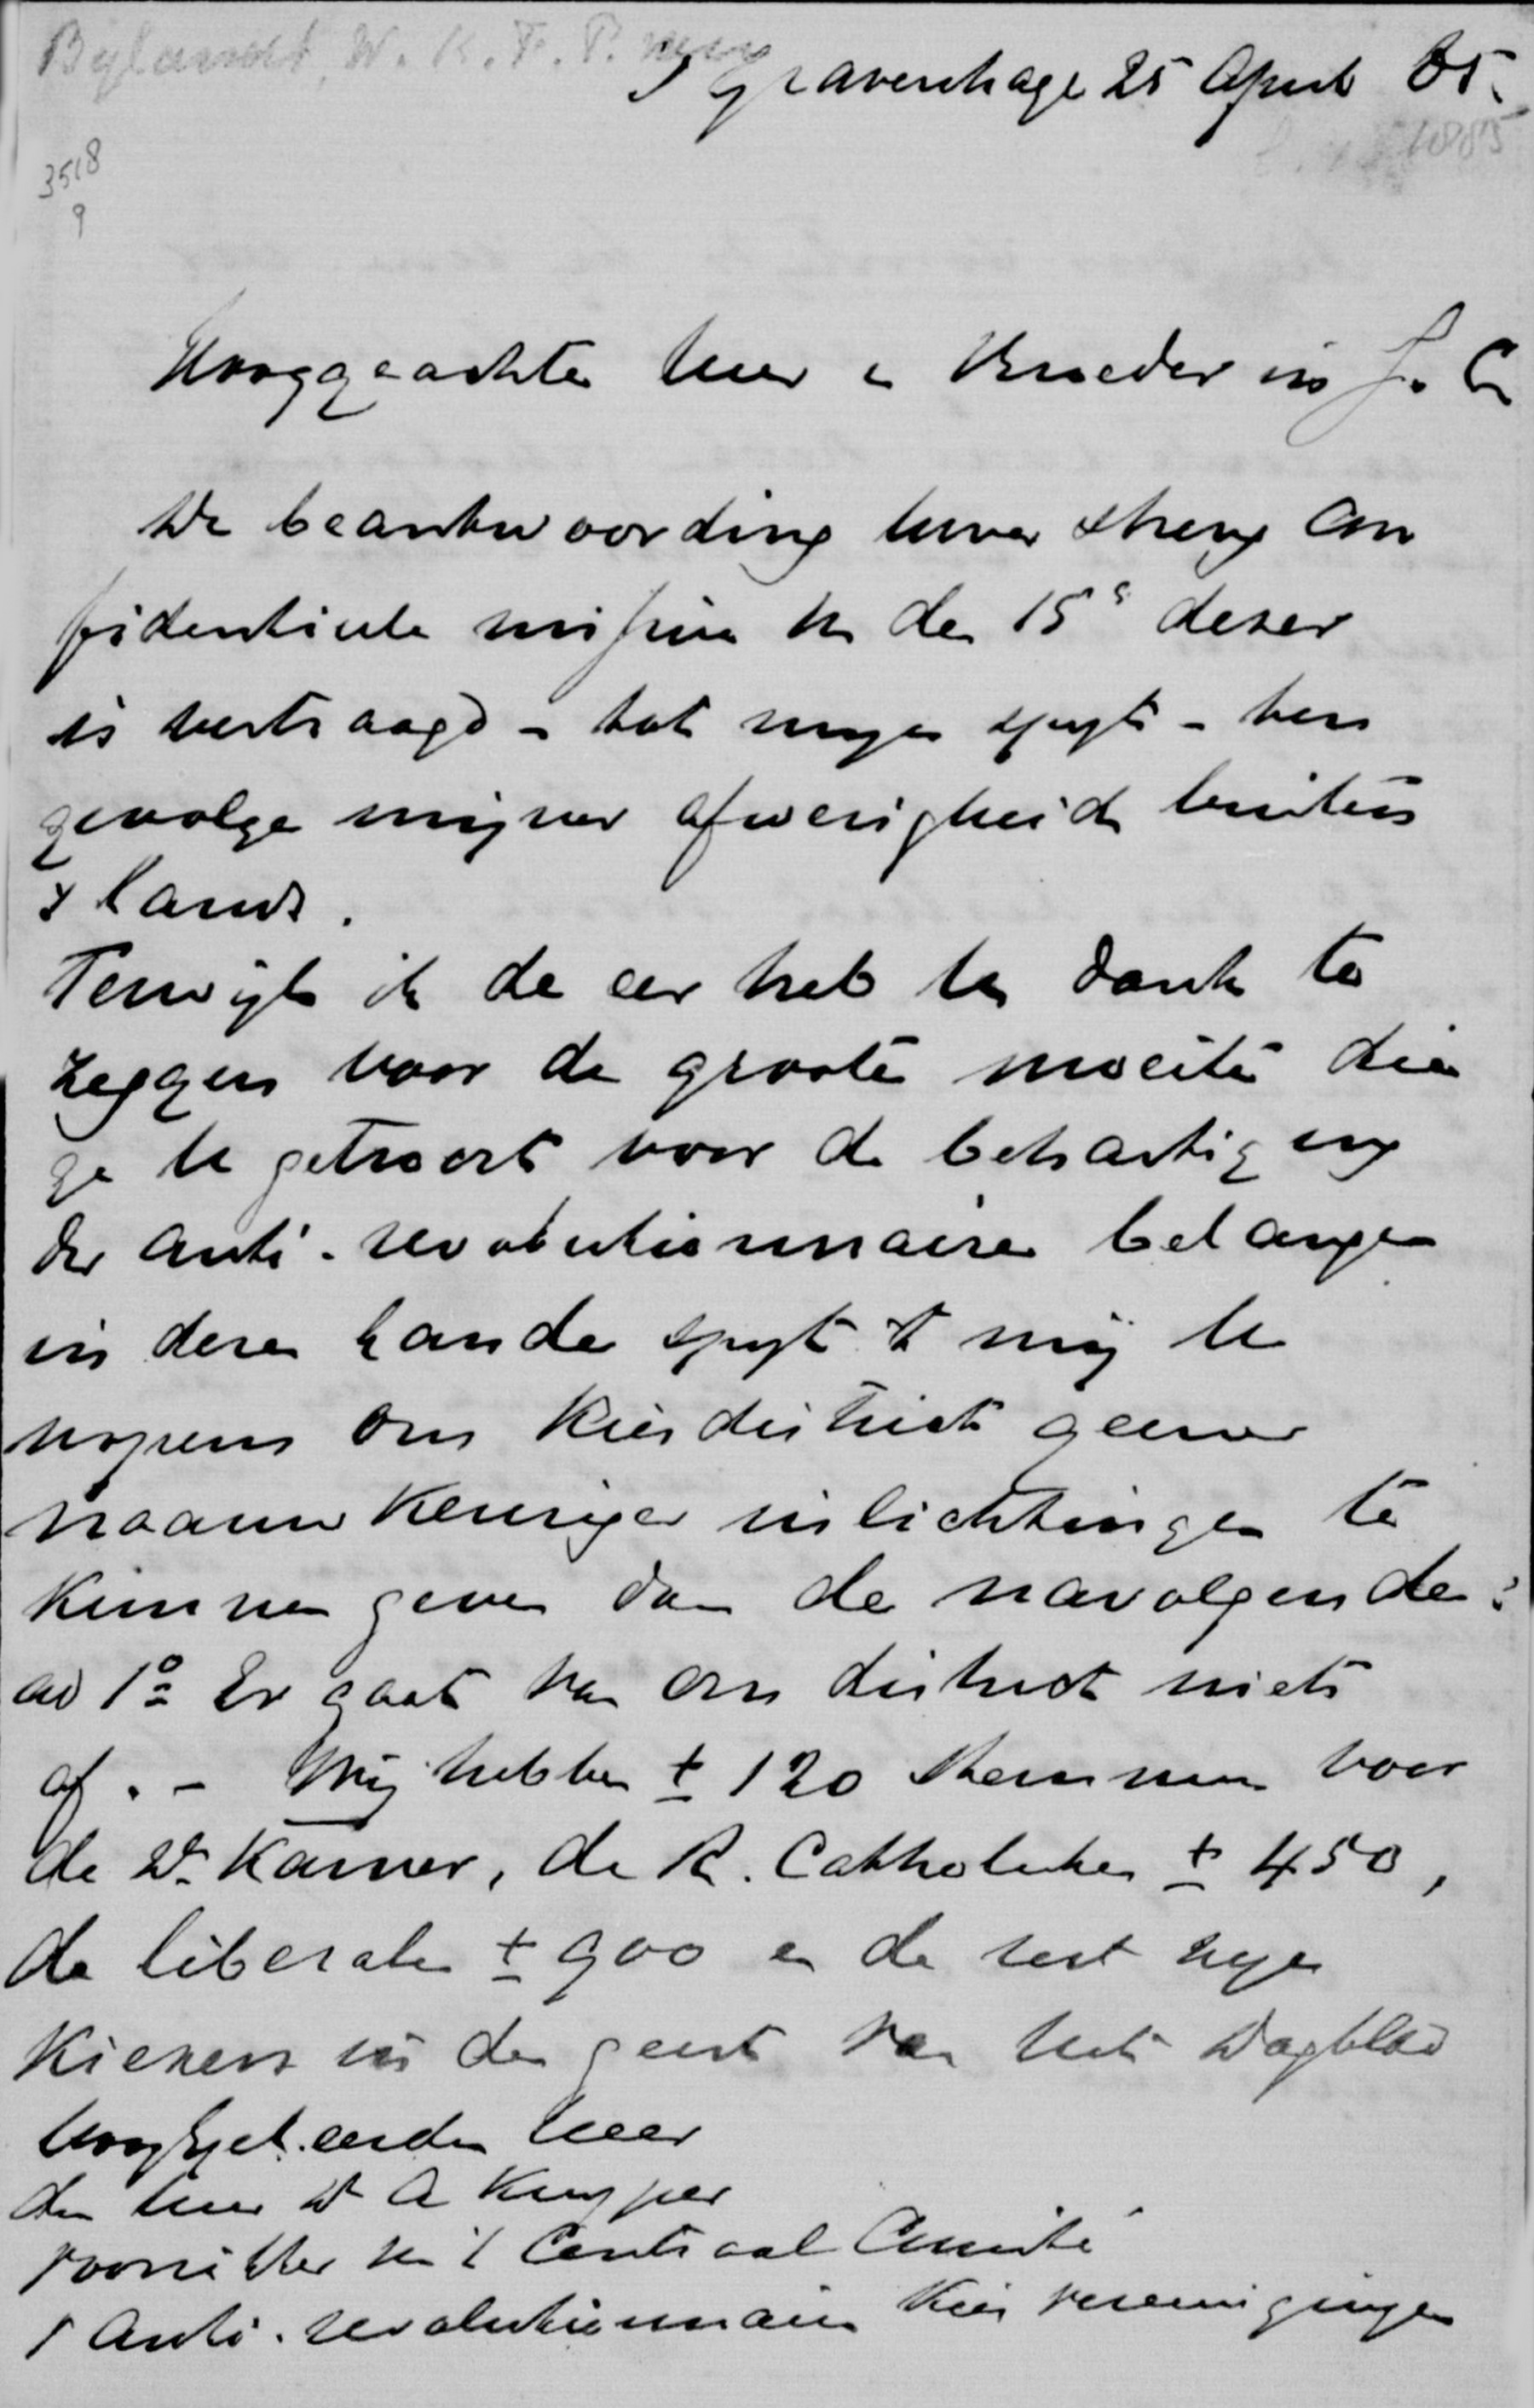 Bylandt, W. K. F. P. van
s Gravenhage 25 April 85.
1885
3518
9
Hooggeachte Heer en Broeder in J. C
De beantwoording uwer streng con
fidentieele missive v. den 15e dezer
is vertraagd – tot mijn spijt – ten
gevolge mijner afwezigheid buiten
s lands.
Terwijl ik de eer heb U dank te
zeggen voor de groote moeite die
ge U getroost voor de behartiging
der anti-revolutionnaire belangen
in deze lande spijt 't mij U
nopens ons Kiesdistrict geene
naauwkeuriger inlichtingen te
kunnen geven dan de navolgende:
ad 1o Er gaat van ons district niets
af. – Wij hebben ± 120 stemmen voor
de 2e Kamer, de R. Catholieken ± 450,
de liberalen ± 900 en de rest zijn
Kiezers in den geest van het Dagblad
Hooggel. eerden Heer
den Heer Dr A Kuyper
voorzitter v. 't Centraal Comité
v Anti-revolutionnaire Kiesvereenigingen